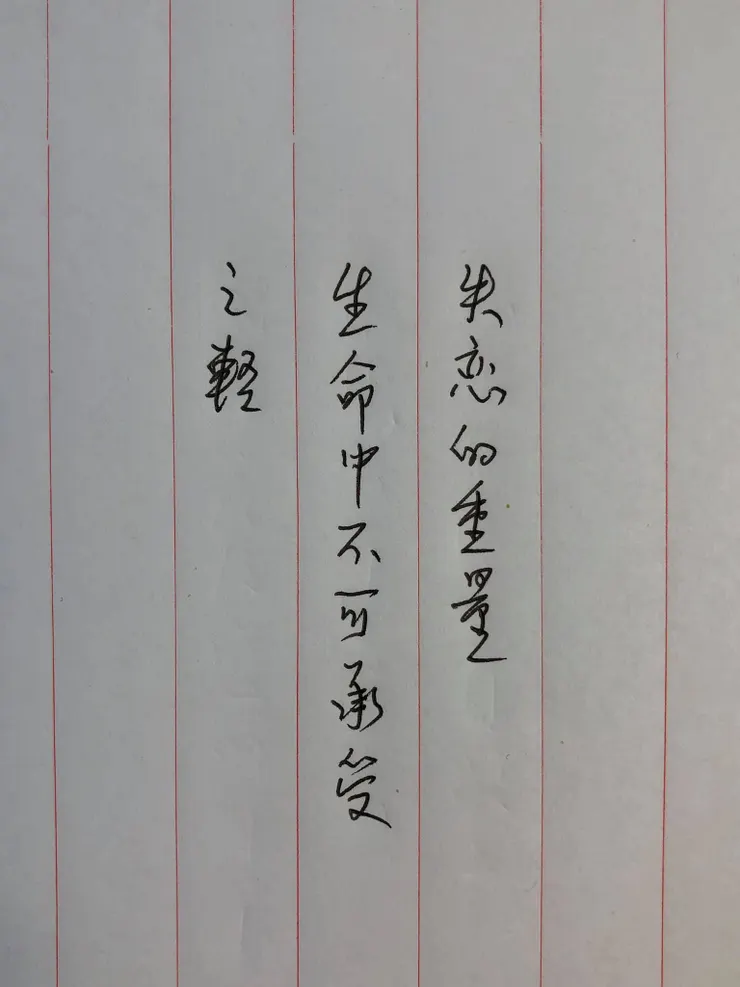 失恋的重量
生命中不可承受
之輕